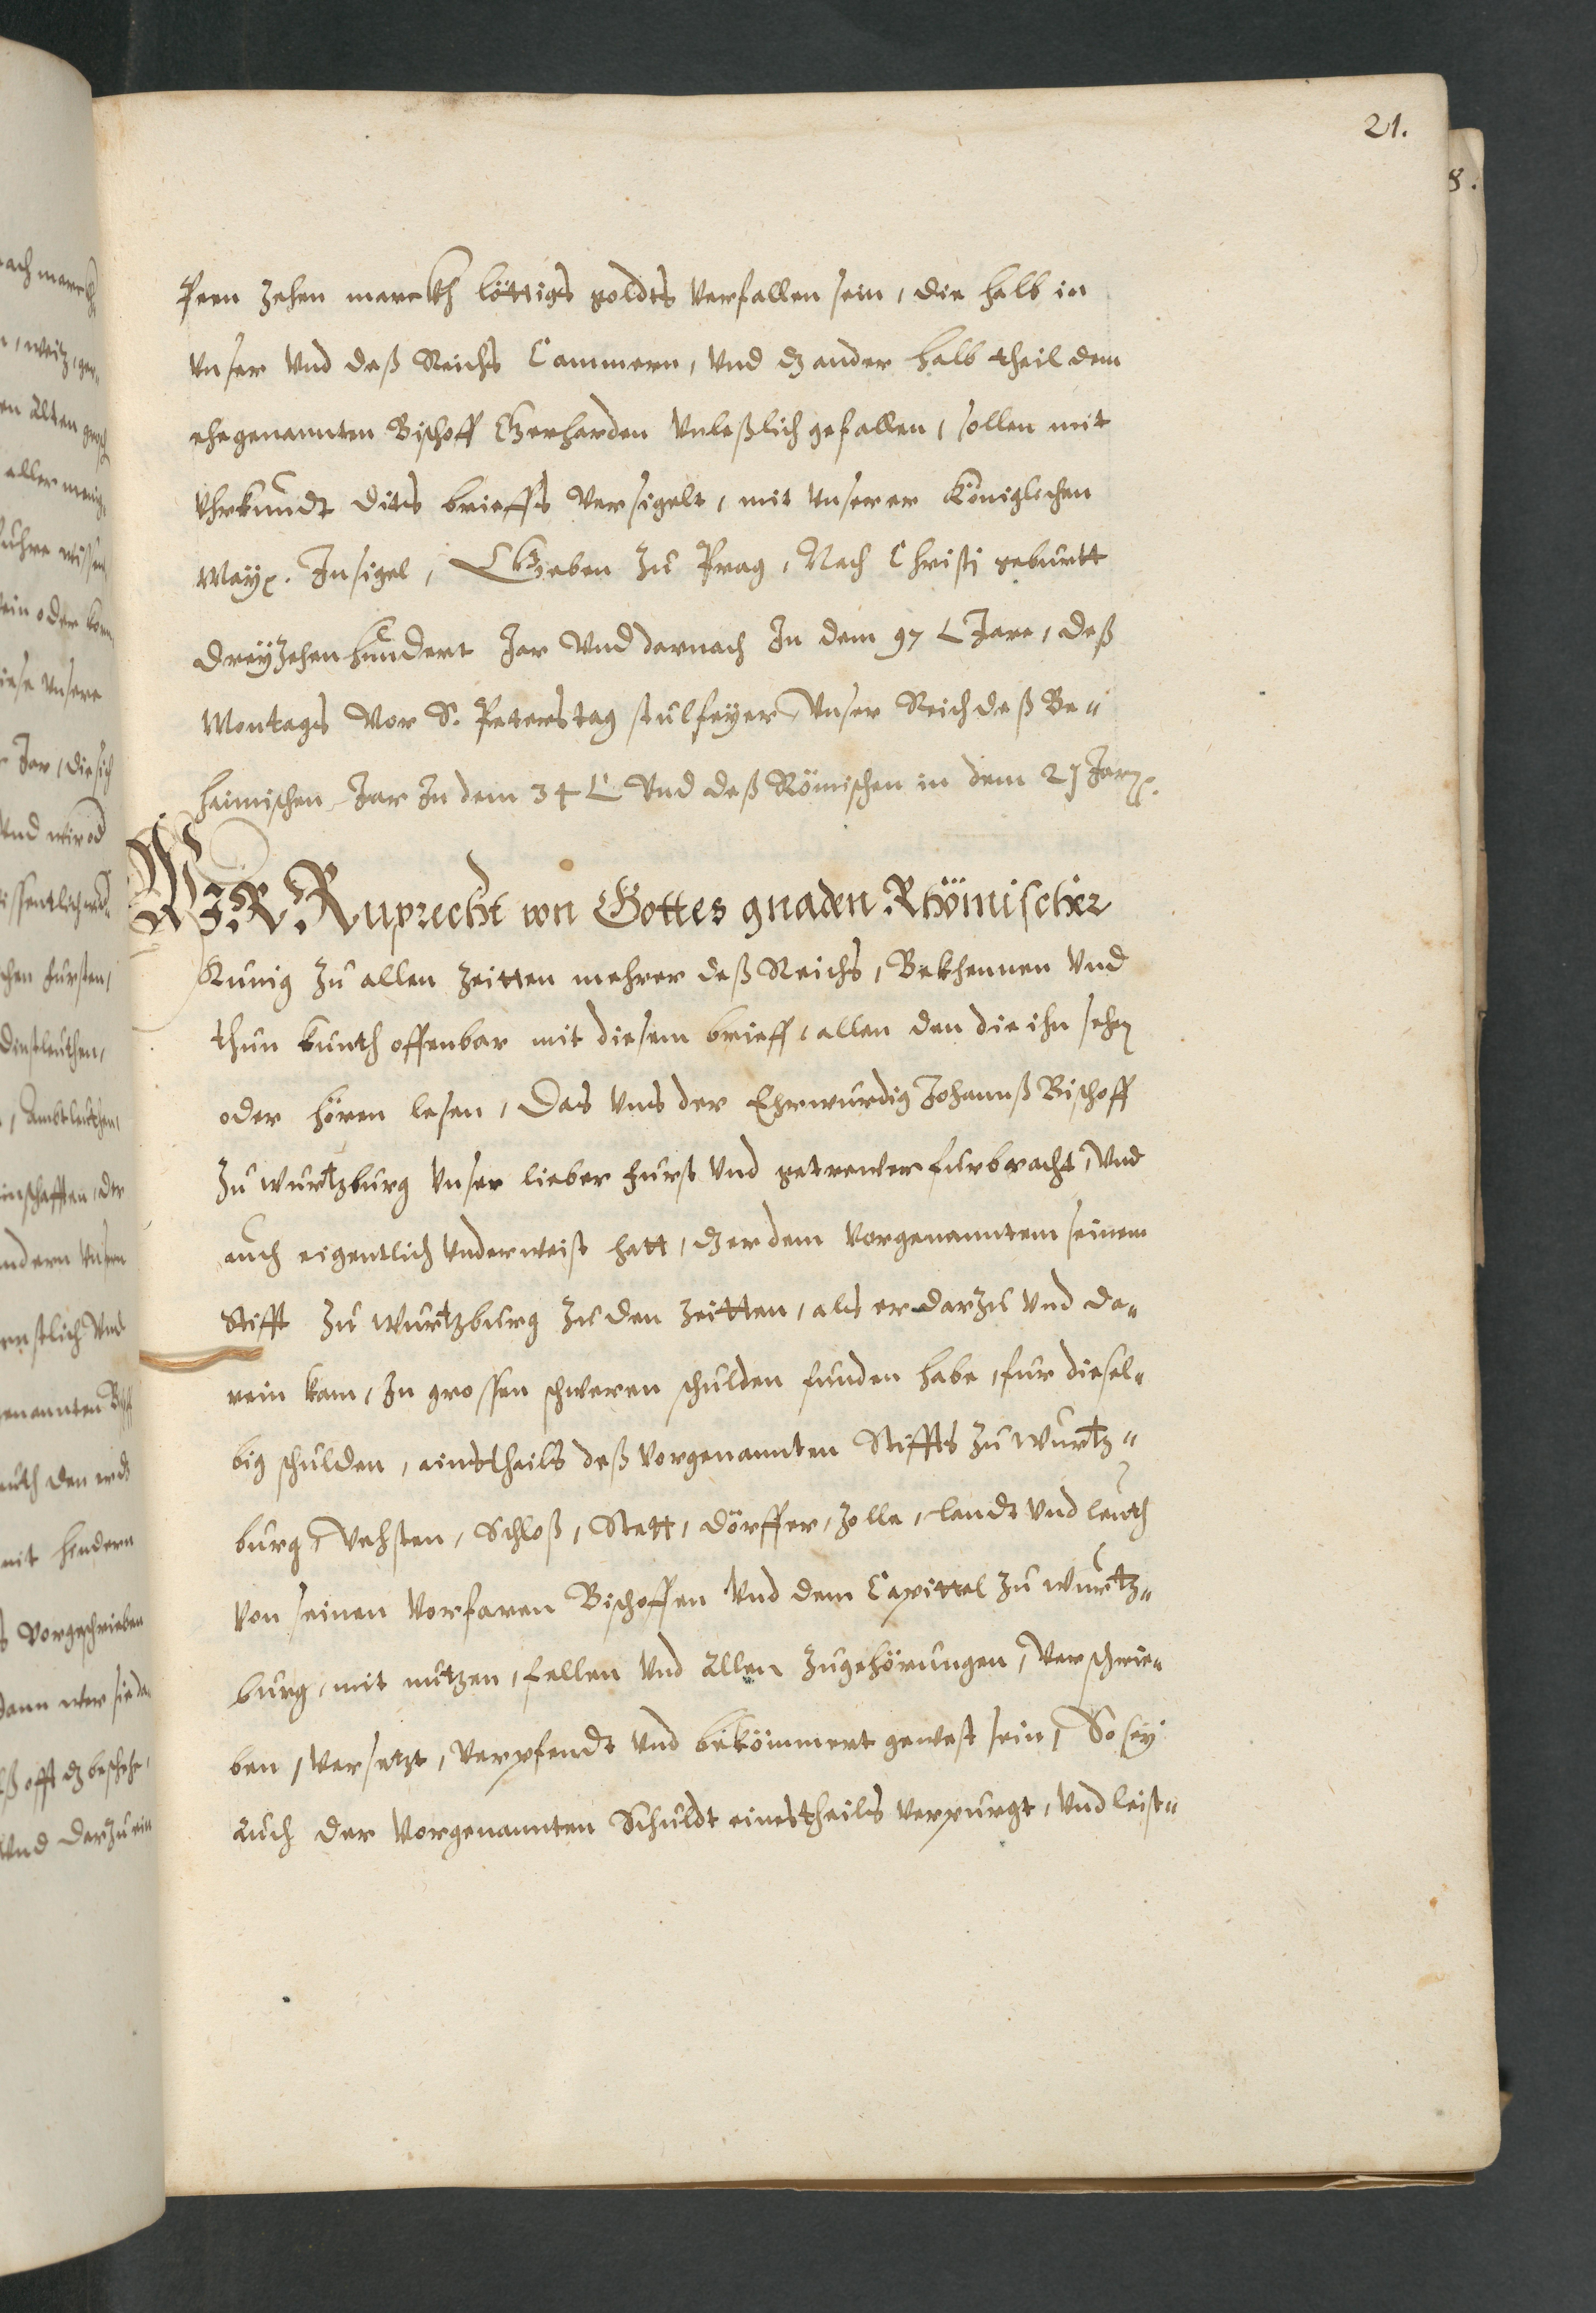 21.
8.
Peen zehen marckh löttigs goldts verfallen sein, die halb in
vnser vnd deß Reichs Cammern, vnd dz ander halb theil dem
ehegenannten Bischoff Gerharden vnleßlich gefallen, sollen mit
Vhrkundt dits brieffs versigelt, mit vnserer Königlichen
Mayꝛ. Insigel, Geben zu Prag, Nach Christi geburtt
dreyzehenhundert Jar vnd darnach In dem 97 L Jare, deß
Montags Vor S. Peterstag stulfeyer, Vnser Reich deß Be„
haimischen Jar In dem 34 L Vnd deß Römischen in dem 21 Jarꝛ.
WIR Ruprecht von Gottes gnaden Rhömischer
Kunig zu allen Zeitten mehrer deß Reichs, Bekhennen vnd
thun kunth offenbar mit diesem brieff, allen den die ihn sehen
oder hören lesen, Das vns der Ehrwurdig Johannß Bischoff
zu Wurtzburg vnser lieber furst vnd getrewer furbracht, vnd
auch eigentlich vnderweist hatt, dz er dem vorgenanntem seinem
Stifft zu Wurtzburg zu den Zeitten, als er darzu vnd da„
rein kam, In grossen schweren schulden funden habe, fur diesel„
big schulden, einstheils deß vorgenannten Stiffts zu Wurtz„
burg, Vehsten, Schloß, Stett, dörffer, Zolle, landt vnd leuth
von seinen Vorfaren Bischoffen vnd dem Capittel zu Wurtz„
burg, mit nutzen, fellen vnd allen zugehörungen, verschrie„
ben, versetzt, verpfendt vnd bekömmert gewest sein, So sey
auch der vorgenannten Schuldt einestheils verpurgt, vnd leist„